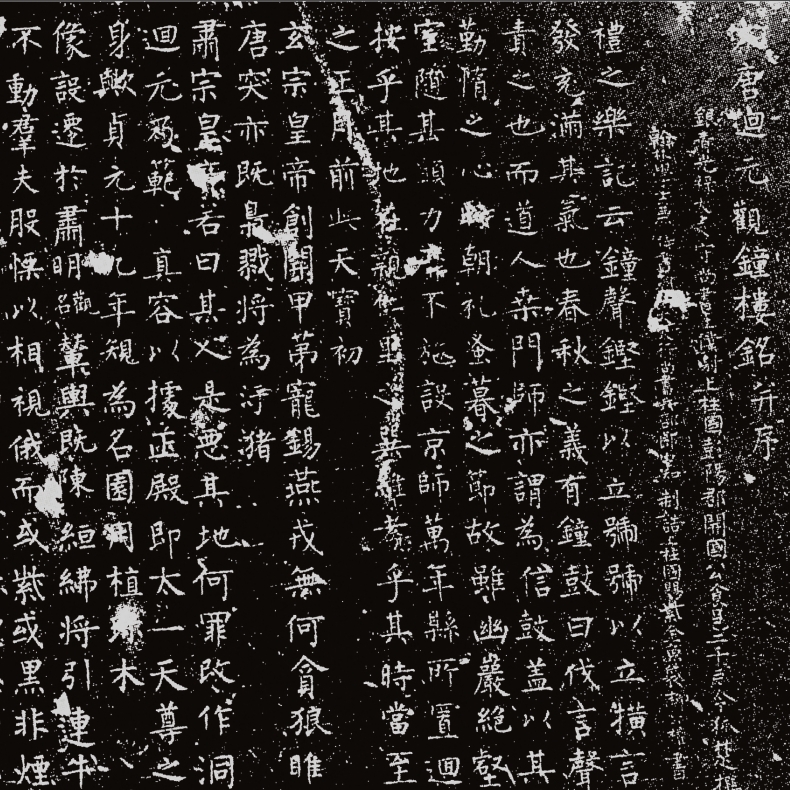 大唐迴元觀鐘樓銘并序
銀青光祿大夫守尚書左僕射上柱國彭陽郡開國公食邑二千戶令狐楚撰
翰林學士兼侍書朝議大夫行尚書兵部郎中知制誥上柱國賜紫金魚袋柳公權書
禮之樂記云鐘聲鏗鏗以立號號以立橫言
發充滿其氣也春秋之義有鐘鼓曰伐言聲
責之也而道人桒門師亦謂為信鼓蓋以其
勤惰之心時朝礼蚤暮之節故雖幽巖絕壑
室隨其願力靡不施設京師萬年縣所置迴
按乎其地在親仁里考乎其時當至
之正月前此天寶初
玄宗皇帝創開甲第寵錫燕戎無何貪狼睢
唐突亦既梟戮將為汙猪
肅宗皇帝若曰其人是惡其地何罪改作洞
迴元爰範真容以據正殿即太一天尊之
身歟貞元十九年規為名園用植林木
像設遷於肅明觀輦輿既陳縆紼將引連牛
不動群夫股慄以相視俄而或紫或黑非煙